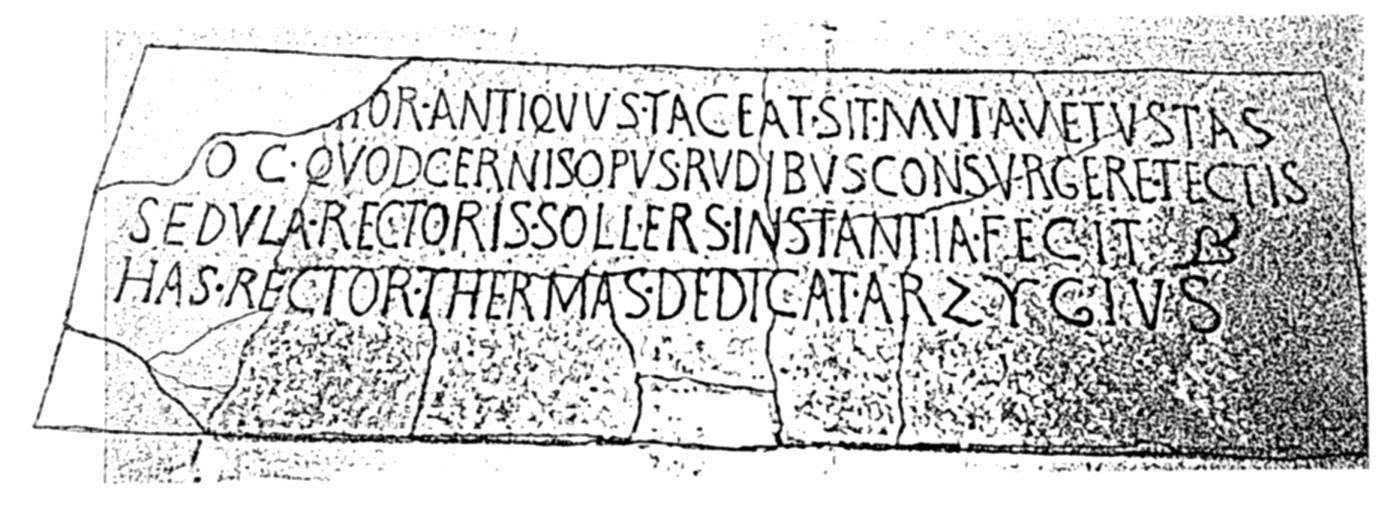 OR·ANTIQVVS·TACEAT·SIT·MVTA·VETVSTAS
OC·QVODCERNISOPVS·RVDIBVS·CONSVRGERE·TECTIS
SEDVLA·RECTORIS·SOLLERS·INSTANTIA·FECIT
HAS·RECTOR·THERMAS·DEDICAT·ARZYGIVS